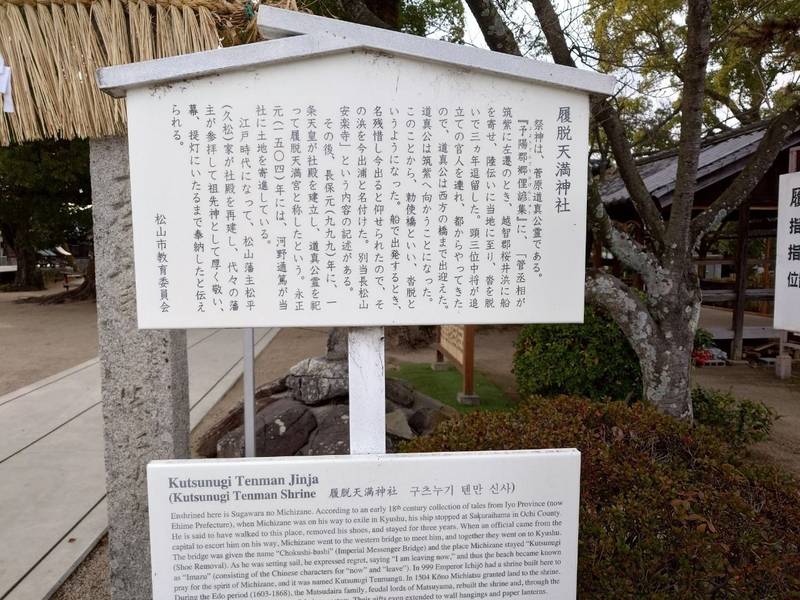 履脱天満神社
祭神は、菅原道真公霊である。
『予陽郡郷俚諺集』に、「菅丞相が
筑紫に左遷のとき、越智郡桜井浜に船
を寄せ、陸伝いに当地に至り、沓を脱
いで三ヵ年逗留した。頭三位中将が追
立ての官人を連れ、都からやってきた
ので、道真公は西方の橋まで出迎えた。
道真公は筑紫へ向かうことになった。
このことから、勅使橋といい、沓脱と
いうようになった。船で出発するとき、
名残惜し今出ると仰せられたので、そ
の浜を今出浦と名付けた。別当長松山
安楽寺」という内容の記述がある。
その後、長保元(九九九)年に、一
条天皇が社殿を建立し、道真公霊を祀
って履脱天満宮と称したという。永正
元(一五〇四)年には、河野通篤が当
社に土地を寄進している。
江戸時代になって、松山藩主松平
(久松)家が社殿を再建し、代々の藩
主が参拝して祖先神として厚く敬い、
幕、提灯にいたるまで奉納したと伝え
られる。
松山市教育委員会
Kutsunugi Tenman Jinja
(Kutsunugi Tenman Shrine 履脱天満神社 구츠누기 텐만 신사)
Enshrined here is Sugawara no Michizane. According to an early 18th century collection of tales from Iyo Province (now
Ehime Prefecture), when Michizane was on his way to exile in Kyushu, his ship stopped at Sakuraihama in Ochi County.
He is said to have walked to this place, removed his shoes, and stayed for three years. When an official came from the
capital to escort him on his way, Michizane went to the western bridge to meet him, and together they went on to Kyushu.
The bridge was given the name "Chokushi-bashi" (Imperial Messenger Bridge) and the place Michizane stayed "Kutsunugi
(Shoe Removal). As he was setting sail, he expressed regret, saying "I am leaving now," and thus the beach became known
as "Imazu" (consisting of the Chinese characters for "now" and "leave"). In 999 Emperor Ichijō had a shrine built here to
pray for the spirit of Michizane, and it was named Kutsunugi Tenmangū. In 1504 Kōno Michiatsu granted land to the shrine.
During the Edo period (1603-1868), the Matsudaira family, feudal lords of Matsuyama, rebuilt the shrine and, through the
Their gifts even extended to wall hangings and paper lanterns.
履
指
指
位